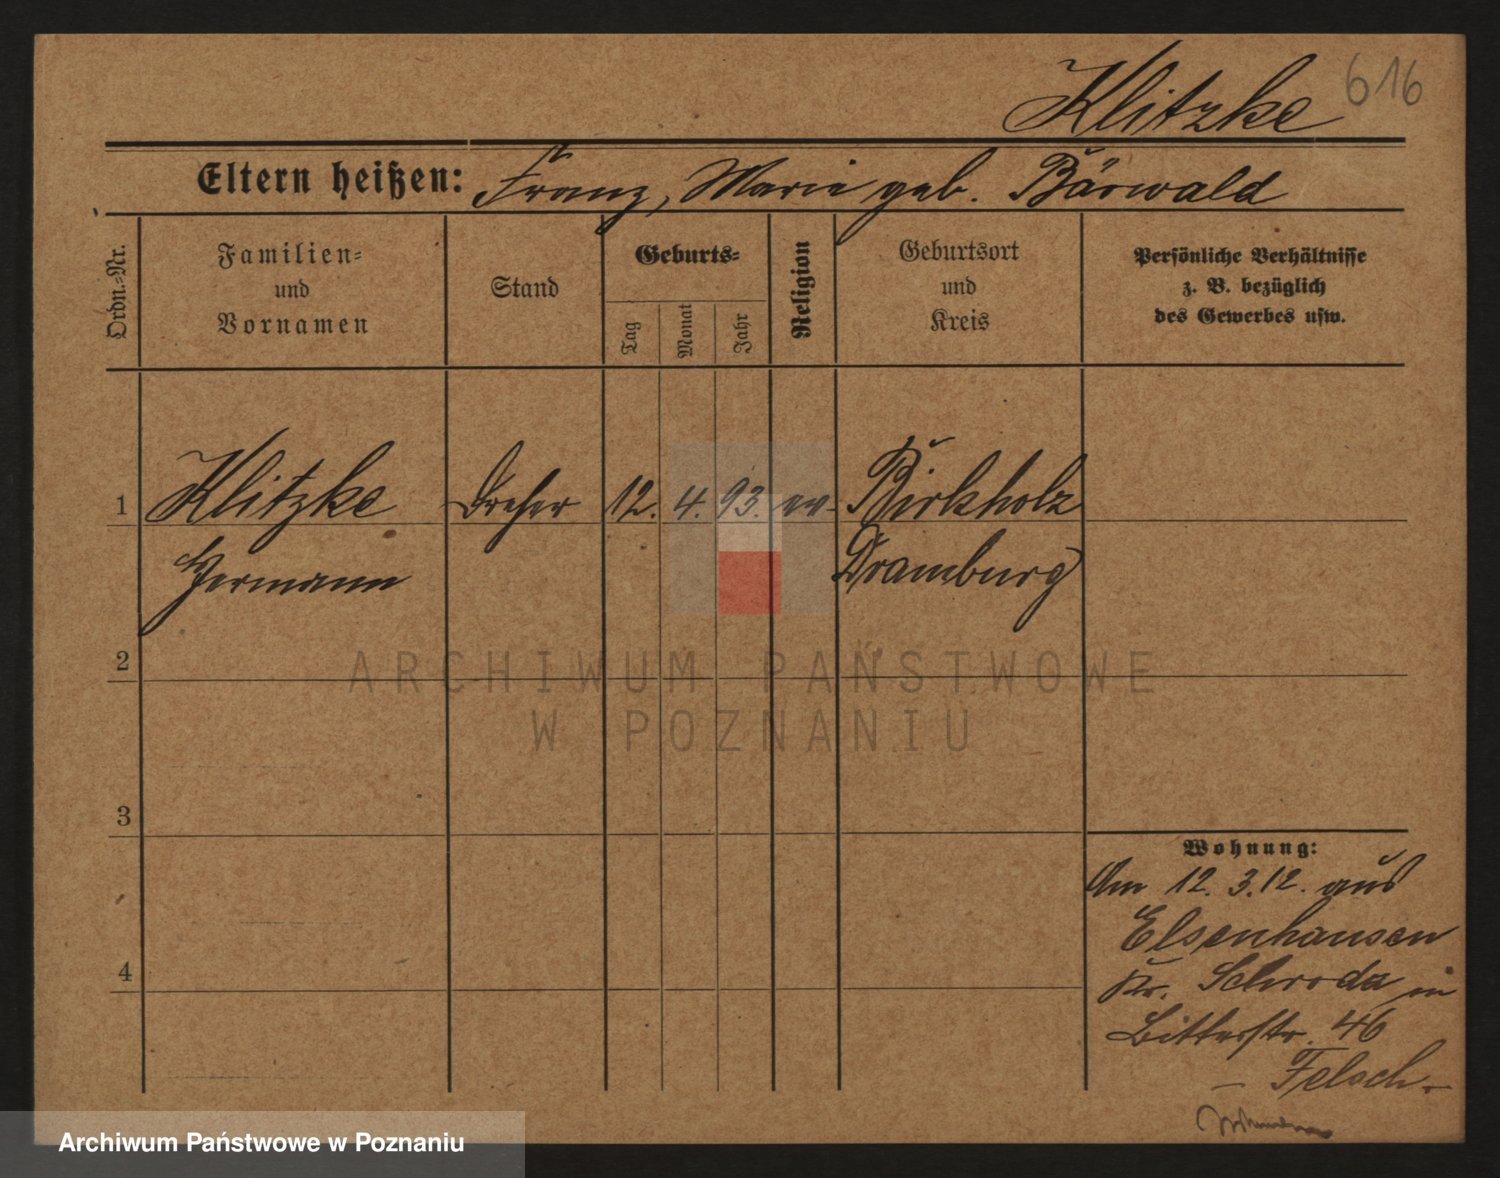 Klitzke 616
Eltern heißen: Franz, Marie geb. Bärwald
Ordn.=Nr.
Familien=
und
Vornamen
Stand
Geburts=
Tag
Monat
Jahr
Religion
Geburtsort
und
Kreis
Persönliche Verhältnisse
z. B. bezüglich
des Gewerbes usw.
1 Klitzke Dreher 12. 4. 93. ev. Birkholz
Hermann Dramburg
2
3
4
Wohnung:
Am 12. 3. 12. aus
Elsenhausen
Kr. Schroda in
Bitterstr. 46
Felsch.
ARCHIWUM PAŃSTWOWE
W POZNANIU
Archiwum Państwowe w Poznaniu